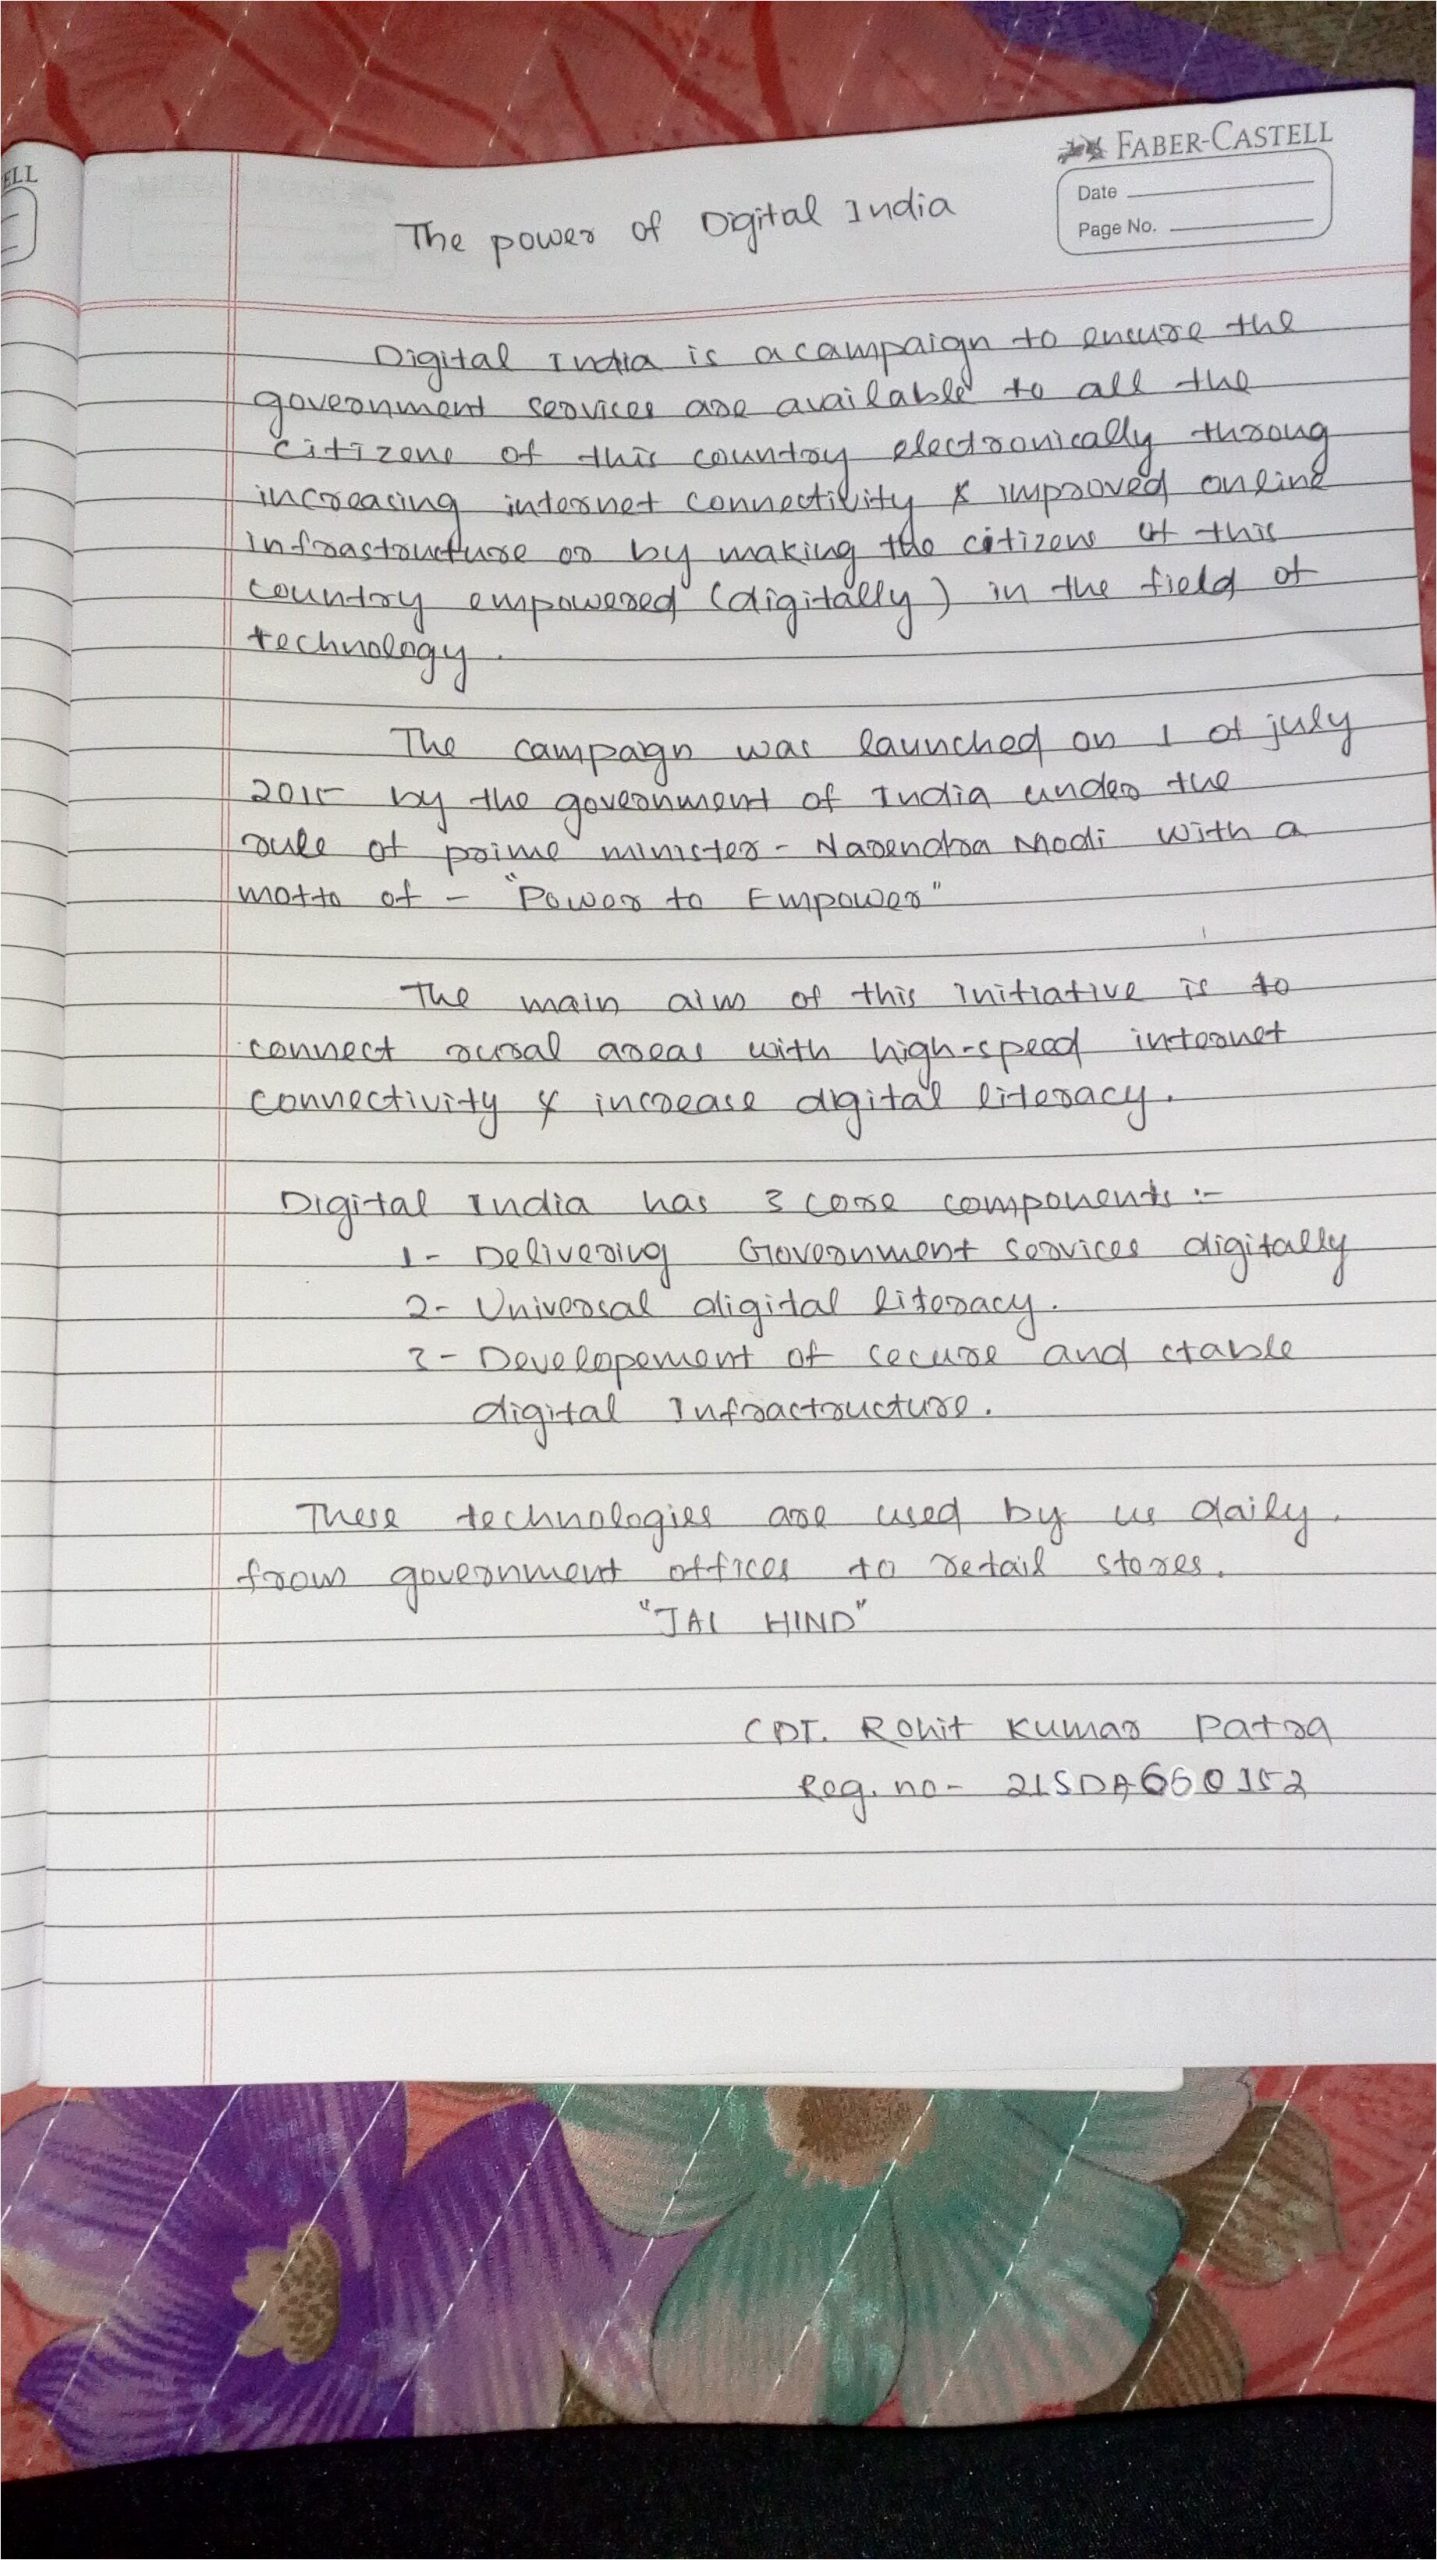 ELL
FABER-CASTELL
Date
Page No.
The power of Digital India
Digital India is a campaign to ensure the
government services are available to all the
citizens of this country electronically throug
increasing internet connectivity & improved online
infrastructure or by making the citizens of this
country empowered (digitally) in the field of
technology.
The campaign was launched on 1 of july
2015 by the government of India under the
rule of prime minister - Narendra Modi with a
motto of - "Power to Empower"
The main aim of this initiative is to
connect rural areas with high-speed internet
connectivity & increase digital literacy.
Digital India has 3 core components :-
1- Delivering Government services digitally
2- Universal digital literacy.
3- Developement of secure and stable
digital Infrastructure.
These technologies are used by us daily.
from government offices to retail stores.
"JAI HIND"
CDT. Rohit Kumar Patra
Reg. no- 21SDA660152